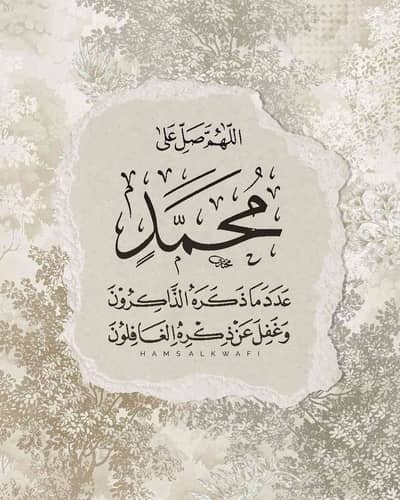 اللَّهُمَّ صَلِّ عَلَى
مُحَمَّدٍ
عَدَدَ مَا ذَكَرَهُ الذَّاكِرُونَ
وَغَفِلَ عَنْ ذِكْرِهِ الغَافِلُونَ
HAMSALKWAFI